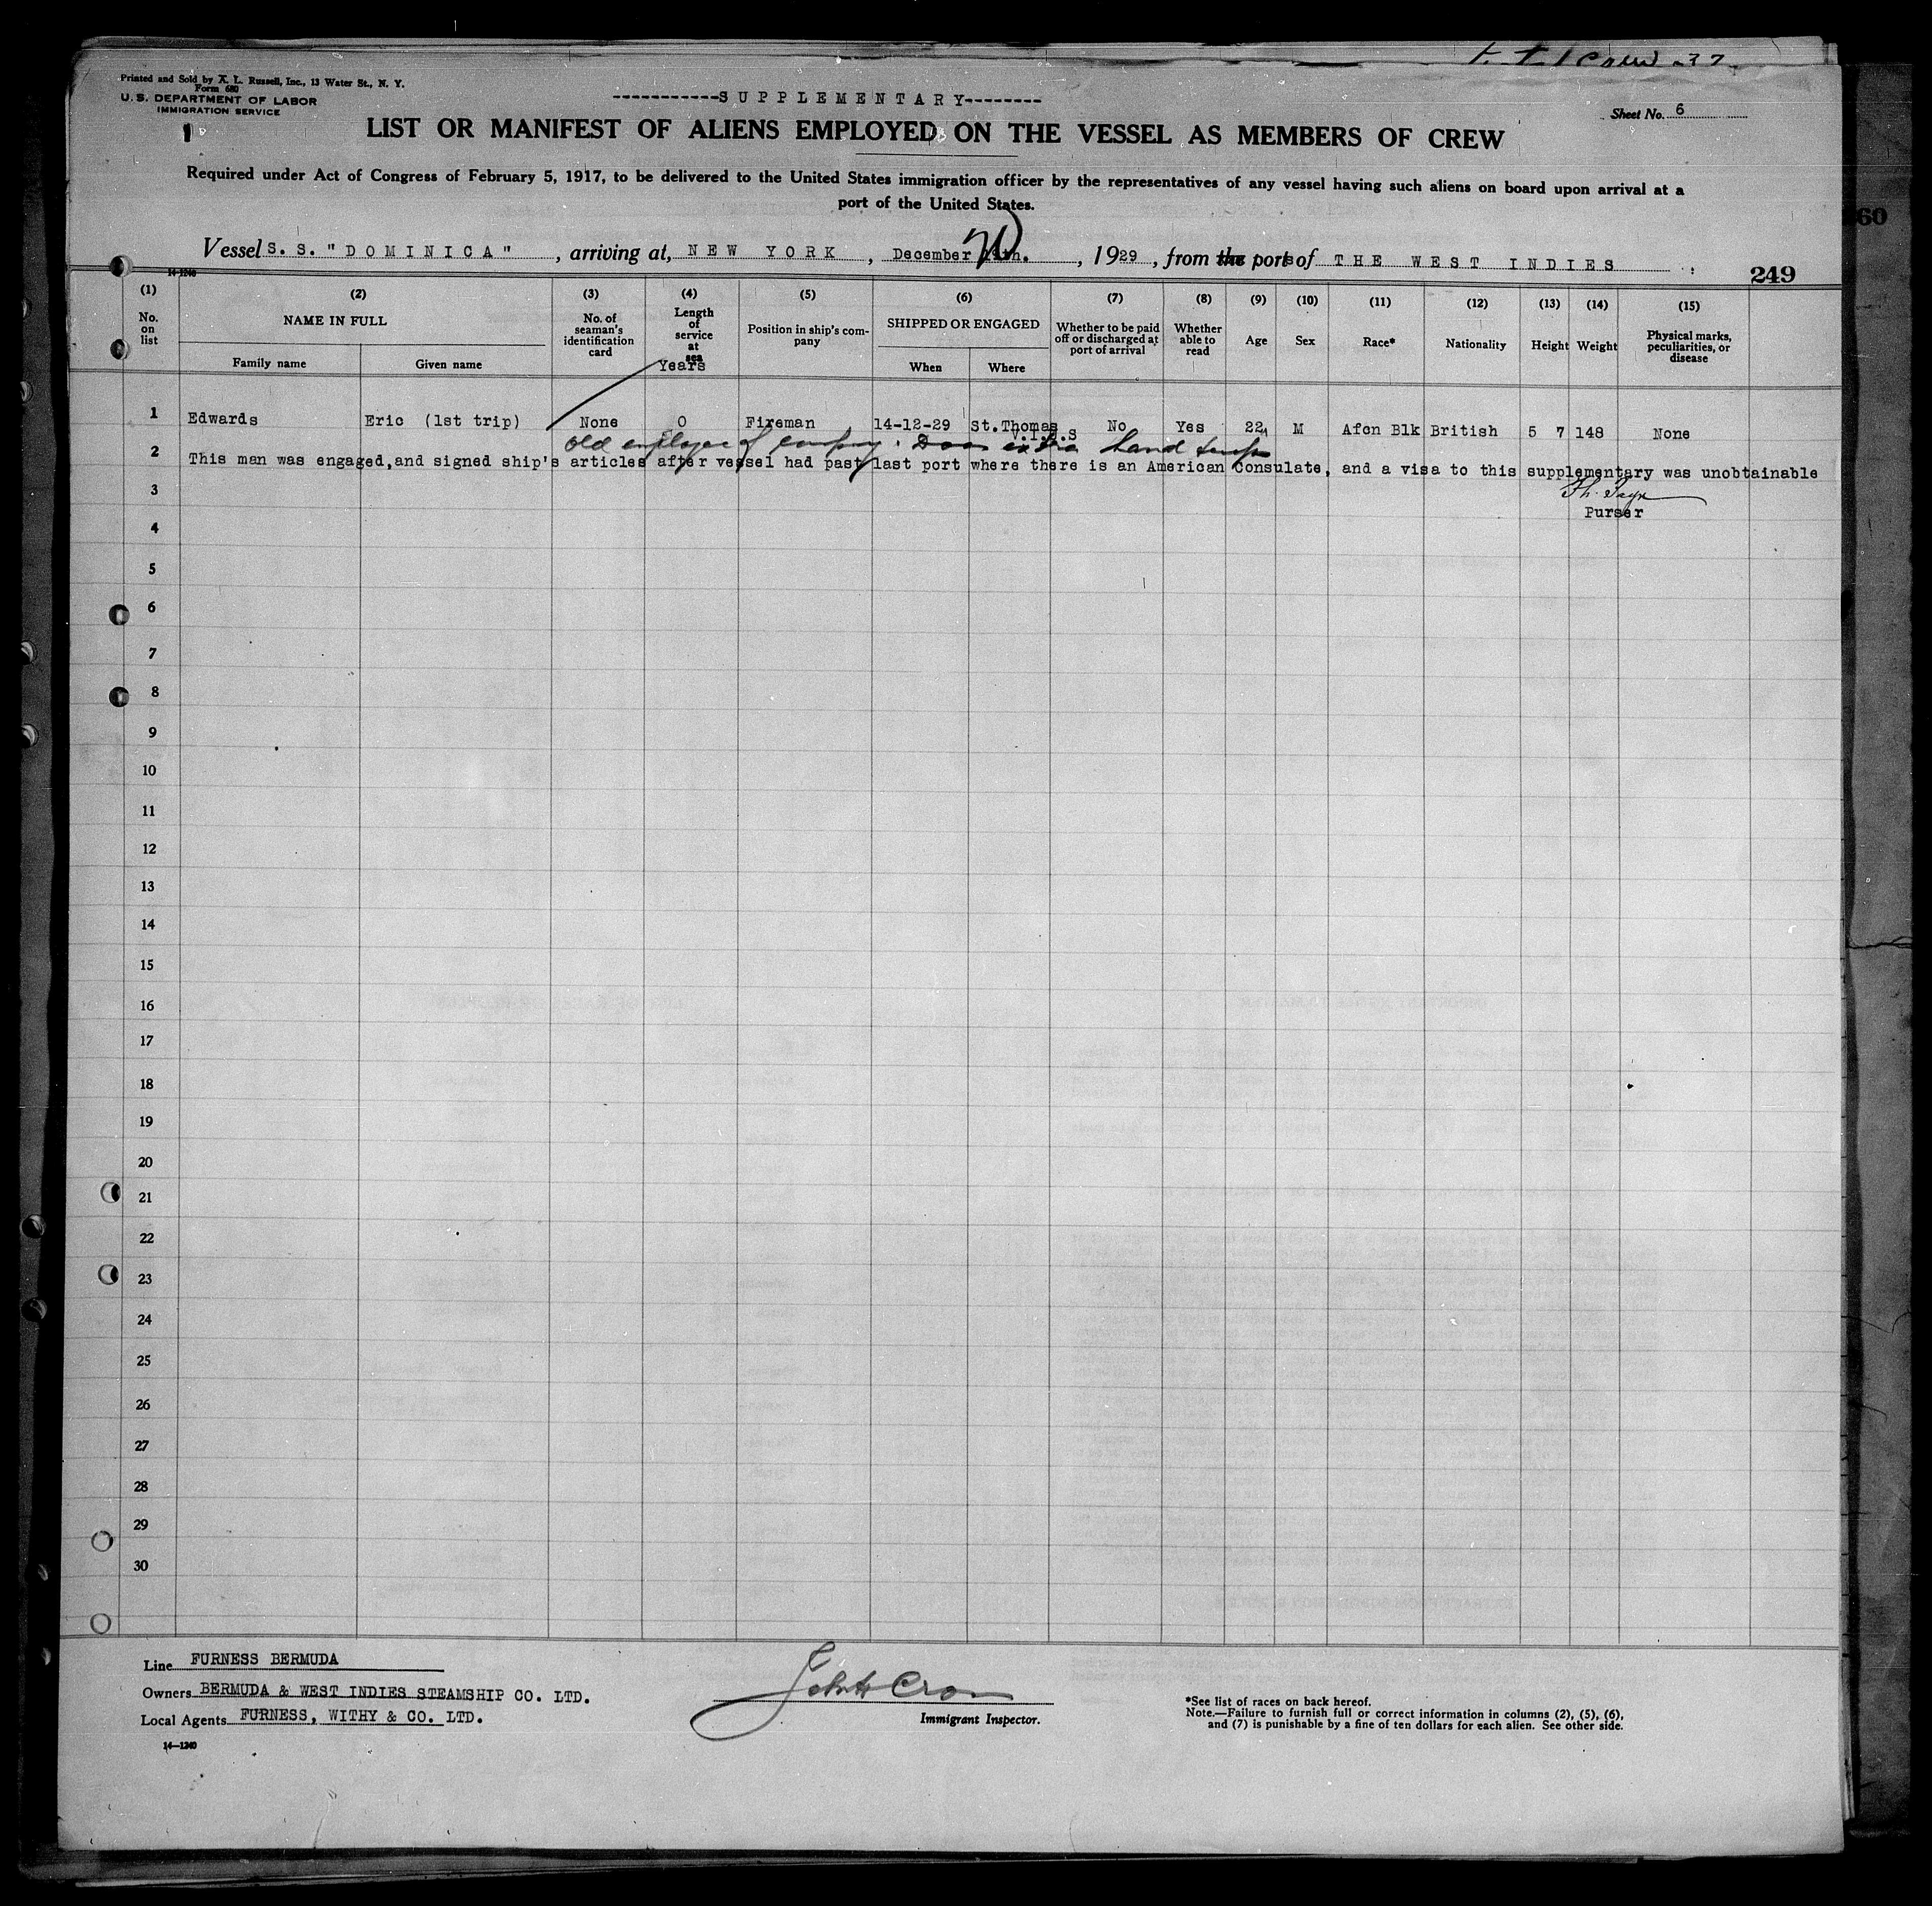 Total Crew 37
Printed and Sold by A. L. Russell, Inc., 13 Water St., N. Y.
Form 680
U. S. DEPARTMENT OF LABOR
IMMIGRATION SERVICE
-----------SUPPLEMENTARY--------
Sheet No. 6
LIST OR MANIFEST OF ALIENS EMPLOYED ON THE VESSEL AS MEMBERS OF CREW
Required under Act of Congress of February 5, 1917, to be delivered to the United States immigration officer by the representatives of any vessel having such aliens on board upon arrival at a
port of the United States.
60
Vessel S. S. "DOMINICA", arriving at, NEW YORK, December 20 19th., 1929, from the ports of THE WEST INDIES
14-1240
249
(1) (2) (3) (4) (5) (6) (7) (8) (9) (10) (11) (12) (13) (14) (15)
No. on list
NAME IN FULL
Family name
Given name
No. of seaman's identification card
Length of service at sea
Years
Position in ship's company
SHIPPED OR ENGAGED
When
Where
Whether to be paid off or discharged at port of arrival
Whether able to read
Age
Sex
Race*
Nationality
Height
Weight
Physical marks, peculiarities, or disease
1 Edwards Eric (1st trip) None 0 Fireman 14-12-29 St.Thomas V.I.U.S No Yes 22 M Afcn Blk British 5 7 148 None
Old employee of company.
extra hand
2 This man was engaged,and signed ship's articles after vessel had past last port where there is an American Consulate, and a visa to this supplementary was unobtainable
3
Purser
4
5
6
7
8
9
10
11
12
13
14
15
16
17
18
19
20
21
22
23
24
25
26
27
28
29
30
Line FURNESS BERMUDA
Owners BERMUDA & WEST INDIES STEAMSHIP CO. LTD.
Local Agents FURNESS, WITHY & CO. LTD.
14-1240
John H Cron
Immigrant Inspector.
*See list of races on back hereof.
Note.—Failure to furnish full or correct information in columns (2), (5), (6),
and (7) is punishable by a fine of ten dollars for each alien. See other side.